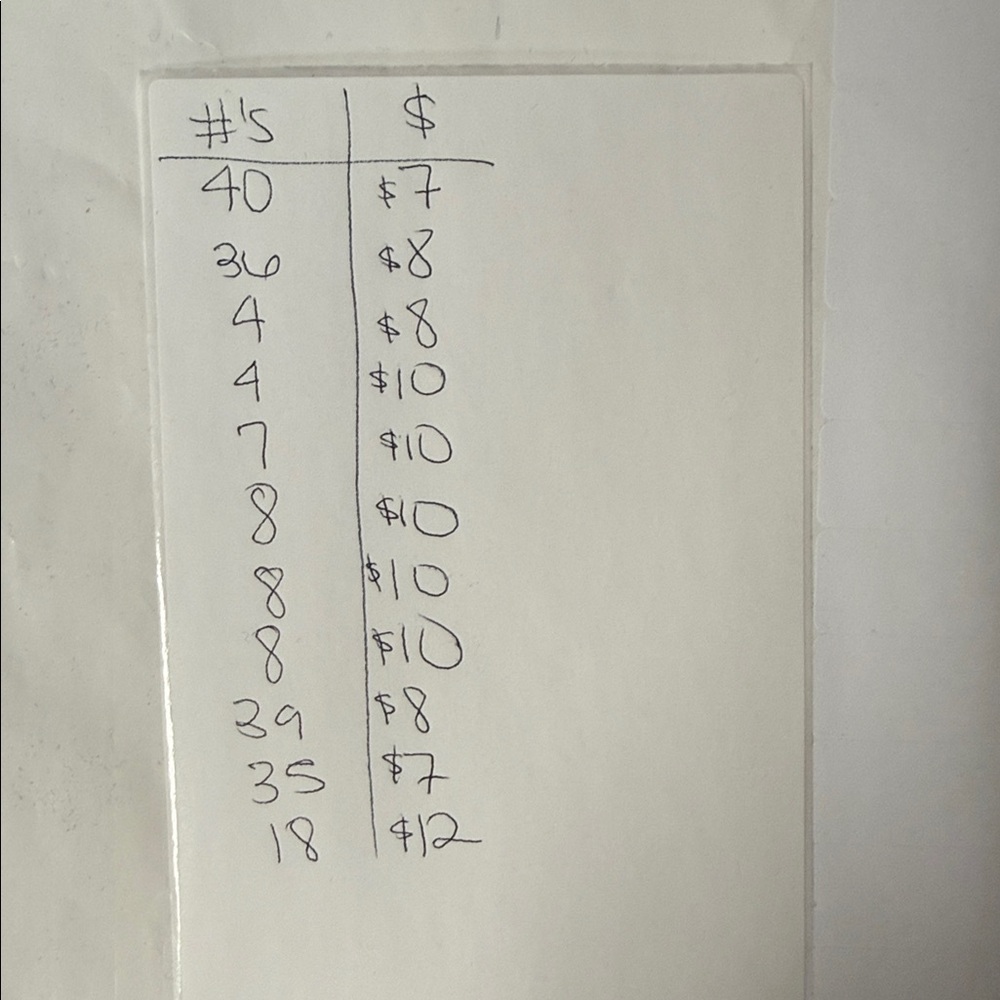 #'S $
40 $7
36 $8
4 $8
4 $10
7 $10
8 $10
8 $10
8 $10
39 $8
35 $7
18 $12